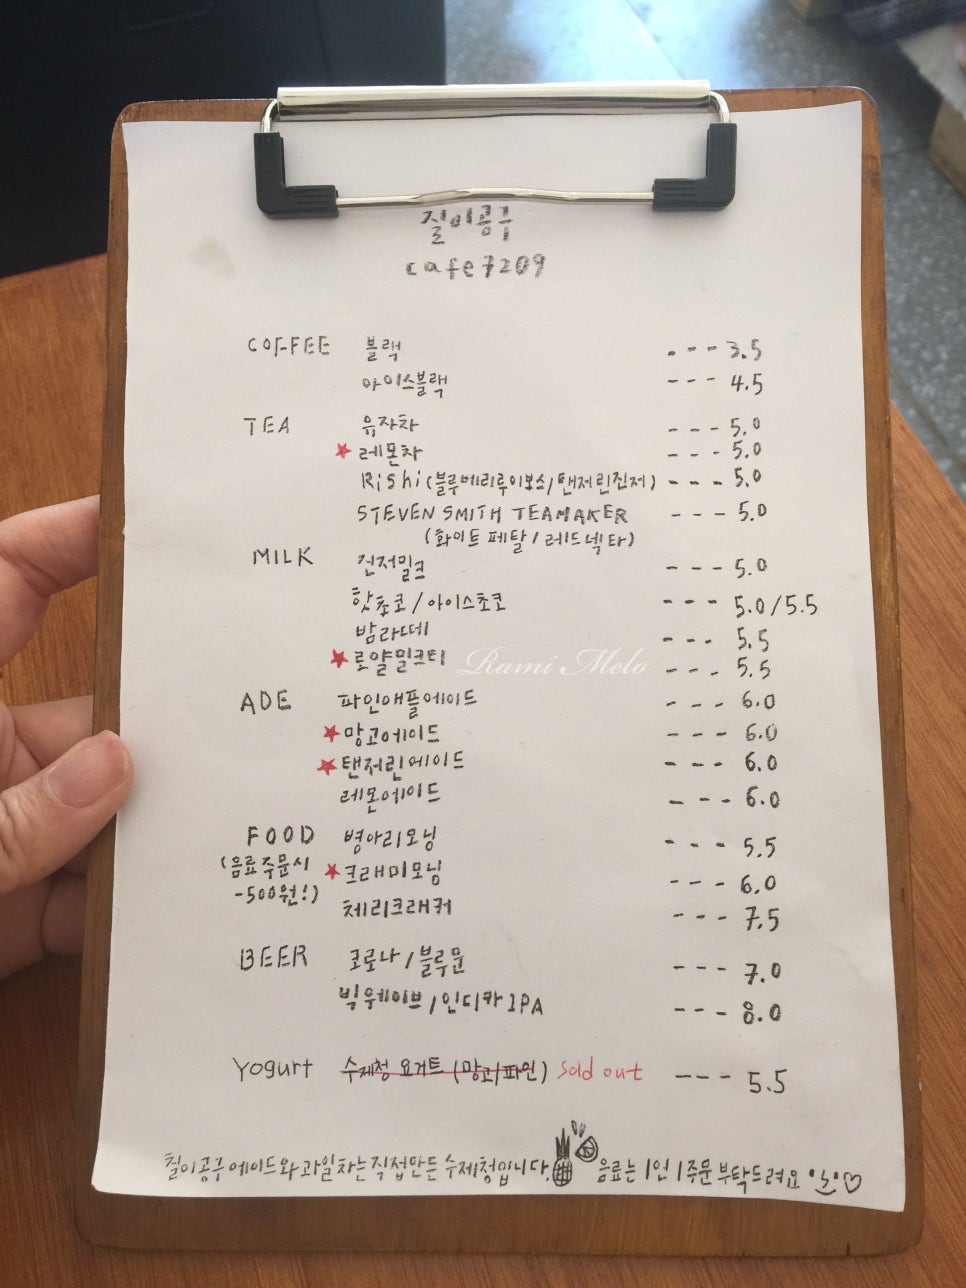 칠이공구
cafe7209
COFFEE 블랙 --- 3.5
아이스블랙 --- 4.5
TEA 유자차 --- 5.0
★ 레몬차 --- 5.0
Rishi (블루베리루이보스/탠저린진저) --- 5.0
STEVEN SMITH TEAMAKER --- 5.0
(화이트 페탈 / 레드넥타)
MILK 진저밀크 --- 5.0
핫초코 / 아이스초코 --- 5.0/5.5
밤라떼 --- 5.5
★ 로얄밀크티 --- 5.5
Rami Melo
ADE 파인애플에이드 --- 6.0
★ 망고에이드 --- 6.0
★ 탠저린에이드 --- 6.0
레몬에이드 --- 6.0
FOOD 병아리모닝 --- 5.5
(음료주문시
-500원!)
★ 크래미모닝 --- 6.0
체리크래커 --- 7.5
BEER 코로나 / 블루문 --- 7.0
빅웨이브 / 인디카 IPA --- 8.0
Yogurt 수제청 요거트 (망고/파인) sold out --- 5.5
칠이공구 에이드와 과일차는 직접만든 수제청입니다. 음료는 1인 1주문 부탁드려요